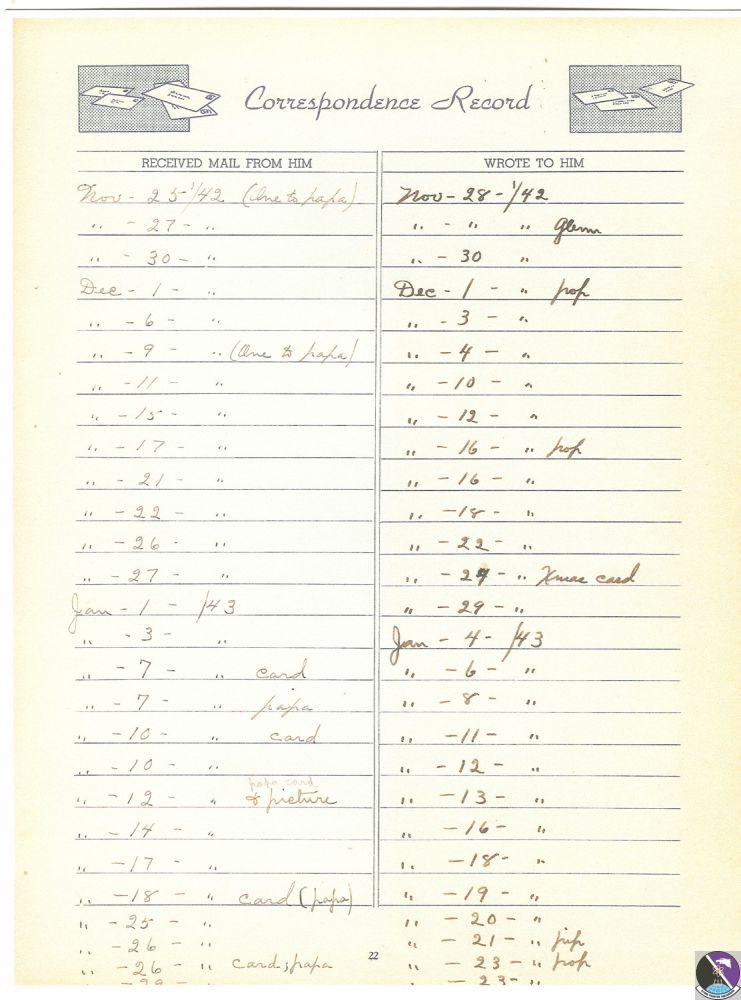 Correspondence Record
RECEIVED MAIL FROM HIM
Nov - 25 '/42 (One to papa)
" - 27 - "
" - 30 - "
Dec - 1 - "
" - 6 - "
" - 9 - " (One to papa)
" - 11 - "
" - 15 - "
" - 17 - "
" - 21 - "
" - 22 - "
" - 26 - "
" - 27 - "
Jan - 1 - /43
" - 3 - "
" - 7 - " card
" - 7 - " papa
" - 10 - " card
" - 10 - "
papa card
" - 12 - " & picture
" - 14 - "
" - 17 - "
" - 18 - " card (papa)
" - 25 - "
" - 26 - "
" - 26 - " card & papa
WROTE TO HIM
Nov - 28 - '/42
" - " " Glenn
" - 30 "
Dec - 1 - " pop
" - 3 - "
" - 4 - "
" - 10 - "
" - 12 - "
" - 16 - " pop
" - 16 - "
" - 18 - "
" - 22 - "
" - " Xmas card
" - 29 - "
Jan - 4 - /43
" - 6 - "
" - 8 - "
" - 11 - "
" - 12 - "
" - 13 - "
" - 16 - "
" - 18 - "
" - 19 - "
" - 20 - "
" - 21 - " pop
" - 23 - " pop
- 23 - "
22